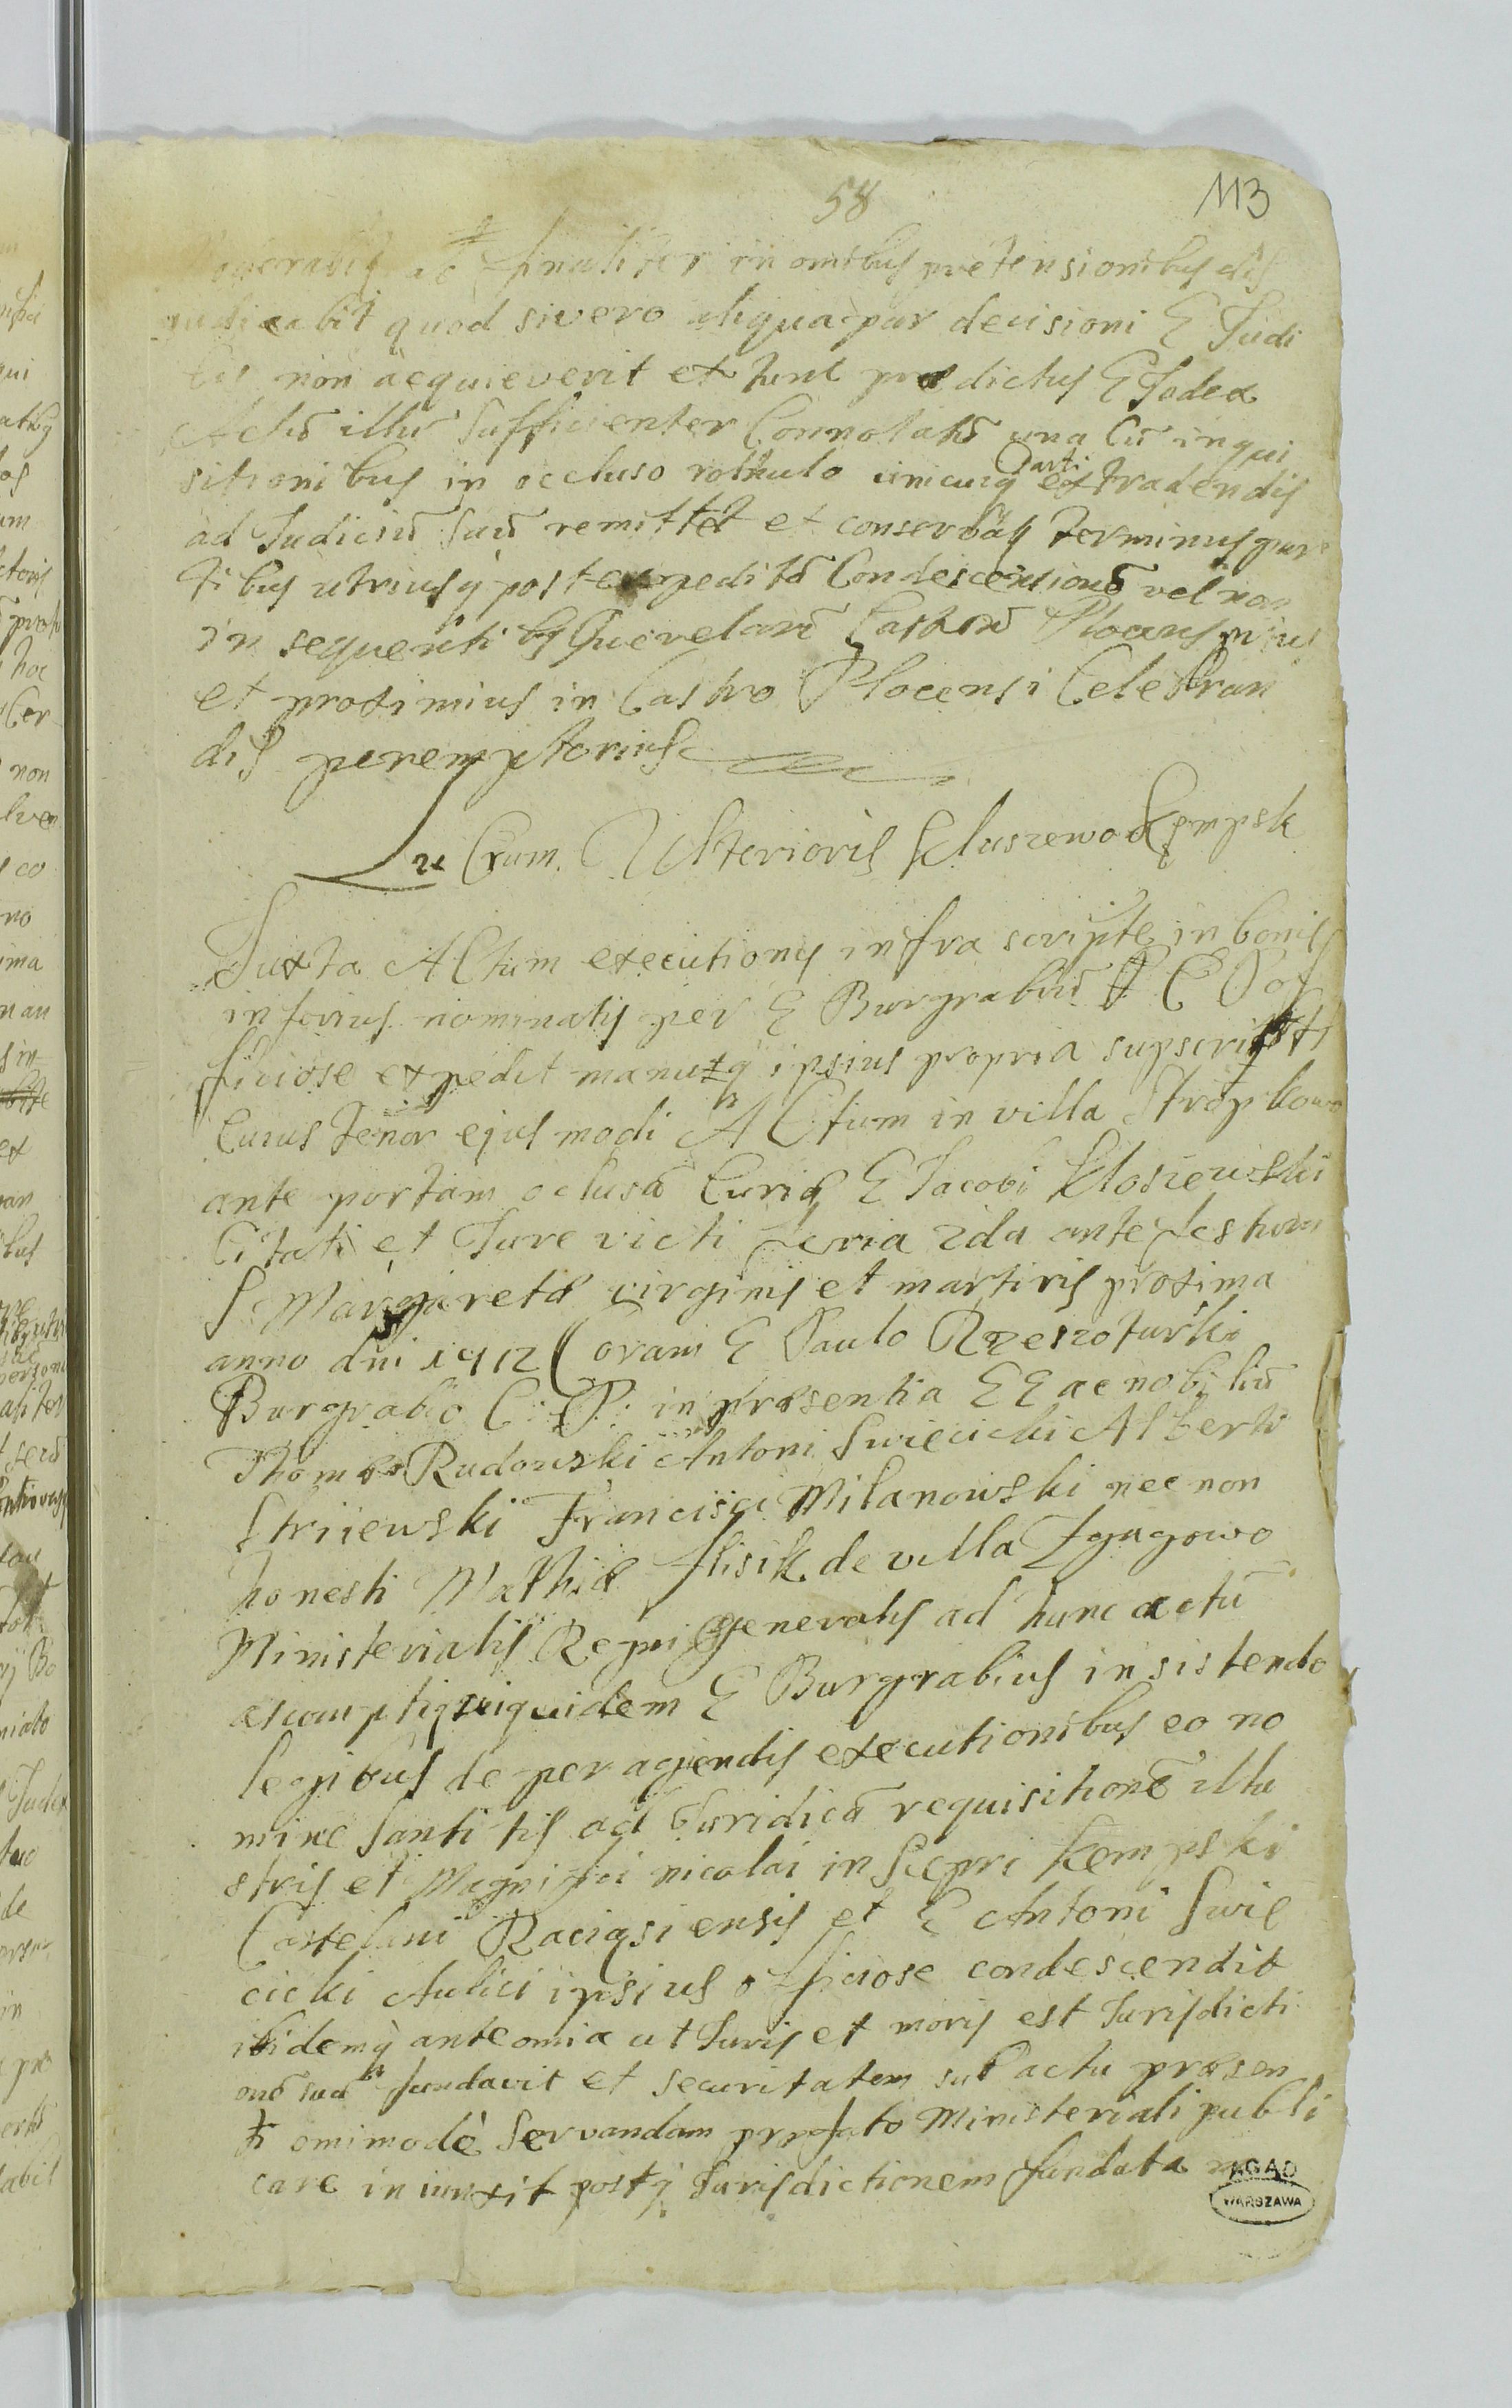 58
113
ac finaliter in omibus prætensionibus dis
judicabit quod si vero aliqua par decisioni G Judi
cis non acquieverit ex tunc prædictus G Judex
Actū illū sufficienter Connotatū una cū inqui
sitionibus in occluso rothulo unicuiq Parti extradendis
ad Judiciū suū remittet et conservāt Terminus par
tibus utriusq post expeditā Condescensionē vel non
in sequenti Querelarū Castrū Plocensius
et proximius in Castro Plocensi Celebran
dis peremptorius
Xrum Ulterioris Kluszewo Kempsk
Juxta Actum executionis infra scripte in bonis
inferius nominatis per G Burgrabiū P C P of
ficiose expedit manuq ipsius propria supscripti
Cuius Tenor ejus modi Actum in villa Stropkowo
ante portam oclusā Curiæ G Jacobi Klosiewski
Citati et Jure victi feria 2da ante festum
S Margaretæ virginis et martiris proxima
anno dni 1712 Coram G Paulo Rzeszotarski
Burgrabio C: P: in præsentia GG ac nobiliū
Thomæ Rudowski Antoni Swiecicki Alberti
Striiewski Francisci Milanowski nec non
honesti Mathiæ Flisik de villa Zgagowo
Ministerialis Regni generalis ad hunc actū
ascumpti siquidem G Burgrabius insistendo
legibus de peragendis executionibus eo no
mine sancitis ad Juridicā requisitionē illu
stris et Magnifici nicolai in Siepri Kempski
Castelani Raciąsiensis et G Antoni Swie
cicki Aulici ipsius officiose condescendit
ibidemq ante omīa ut Juris et moris est Jurisdicti
onē suā fundavit et securitatem sub actu præsen
ti omimodè servandam præfato Ministeriali publi
care iniunxit postq Jurisdictionem fundata
AGAD
WARSZAWA